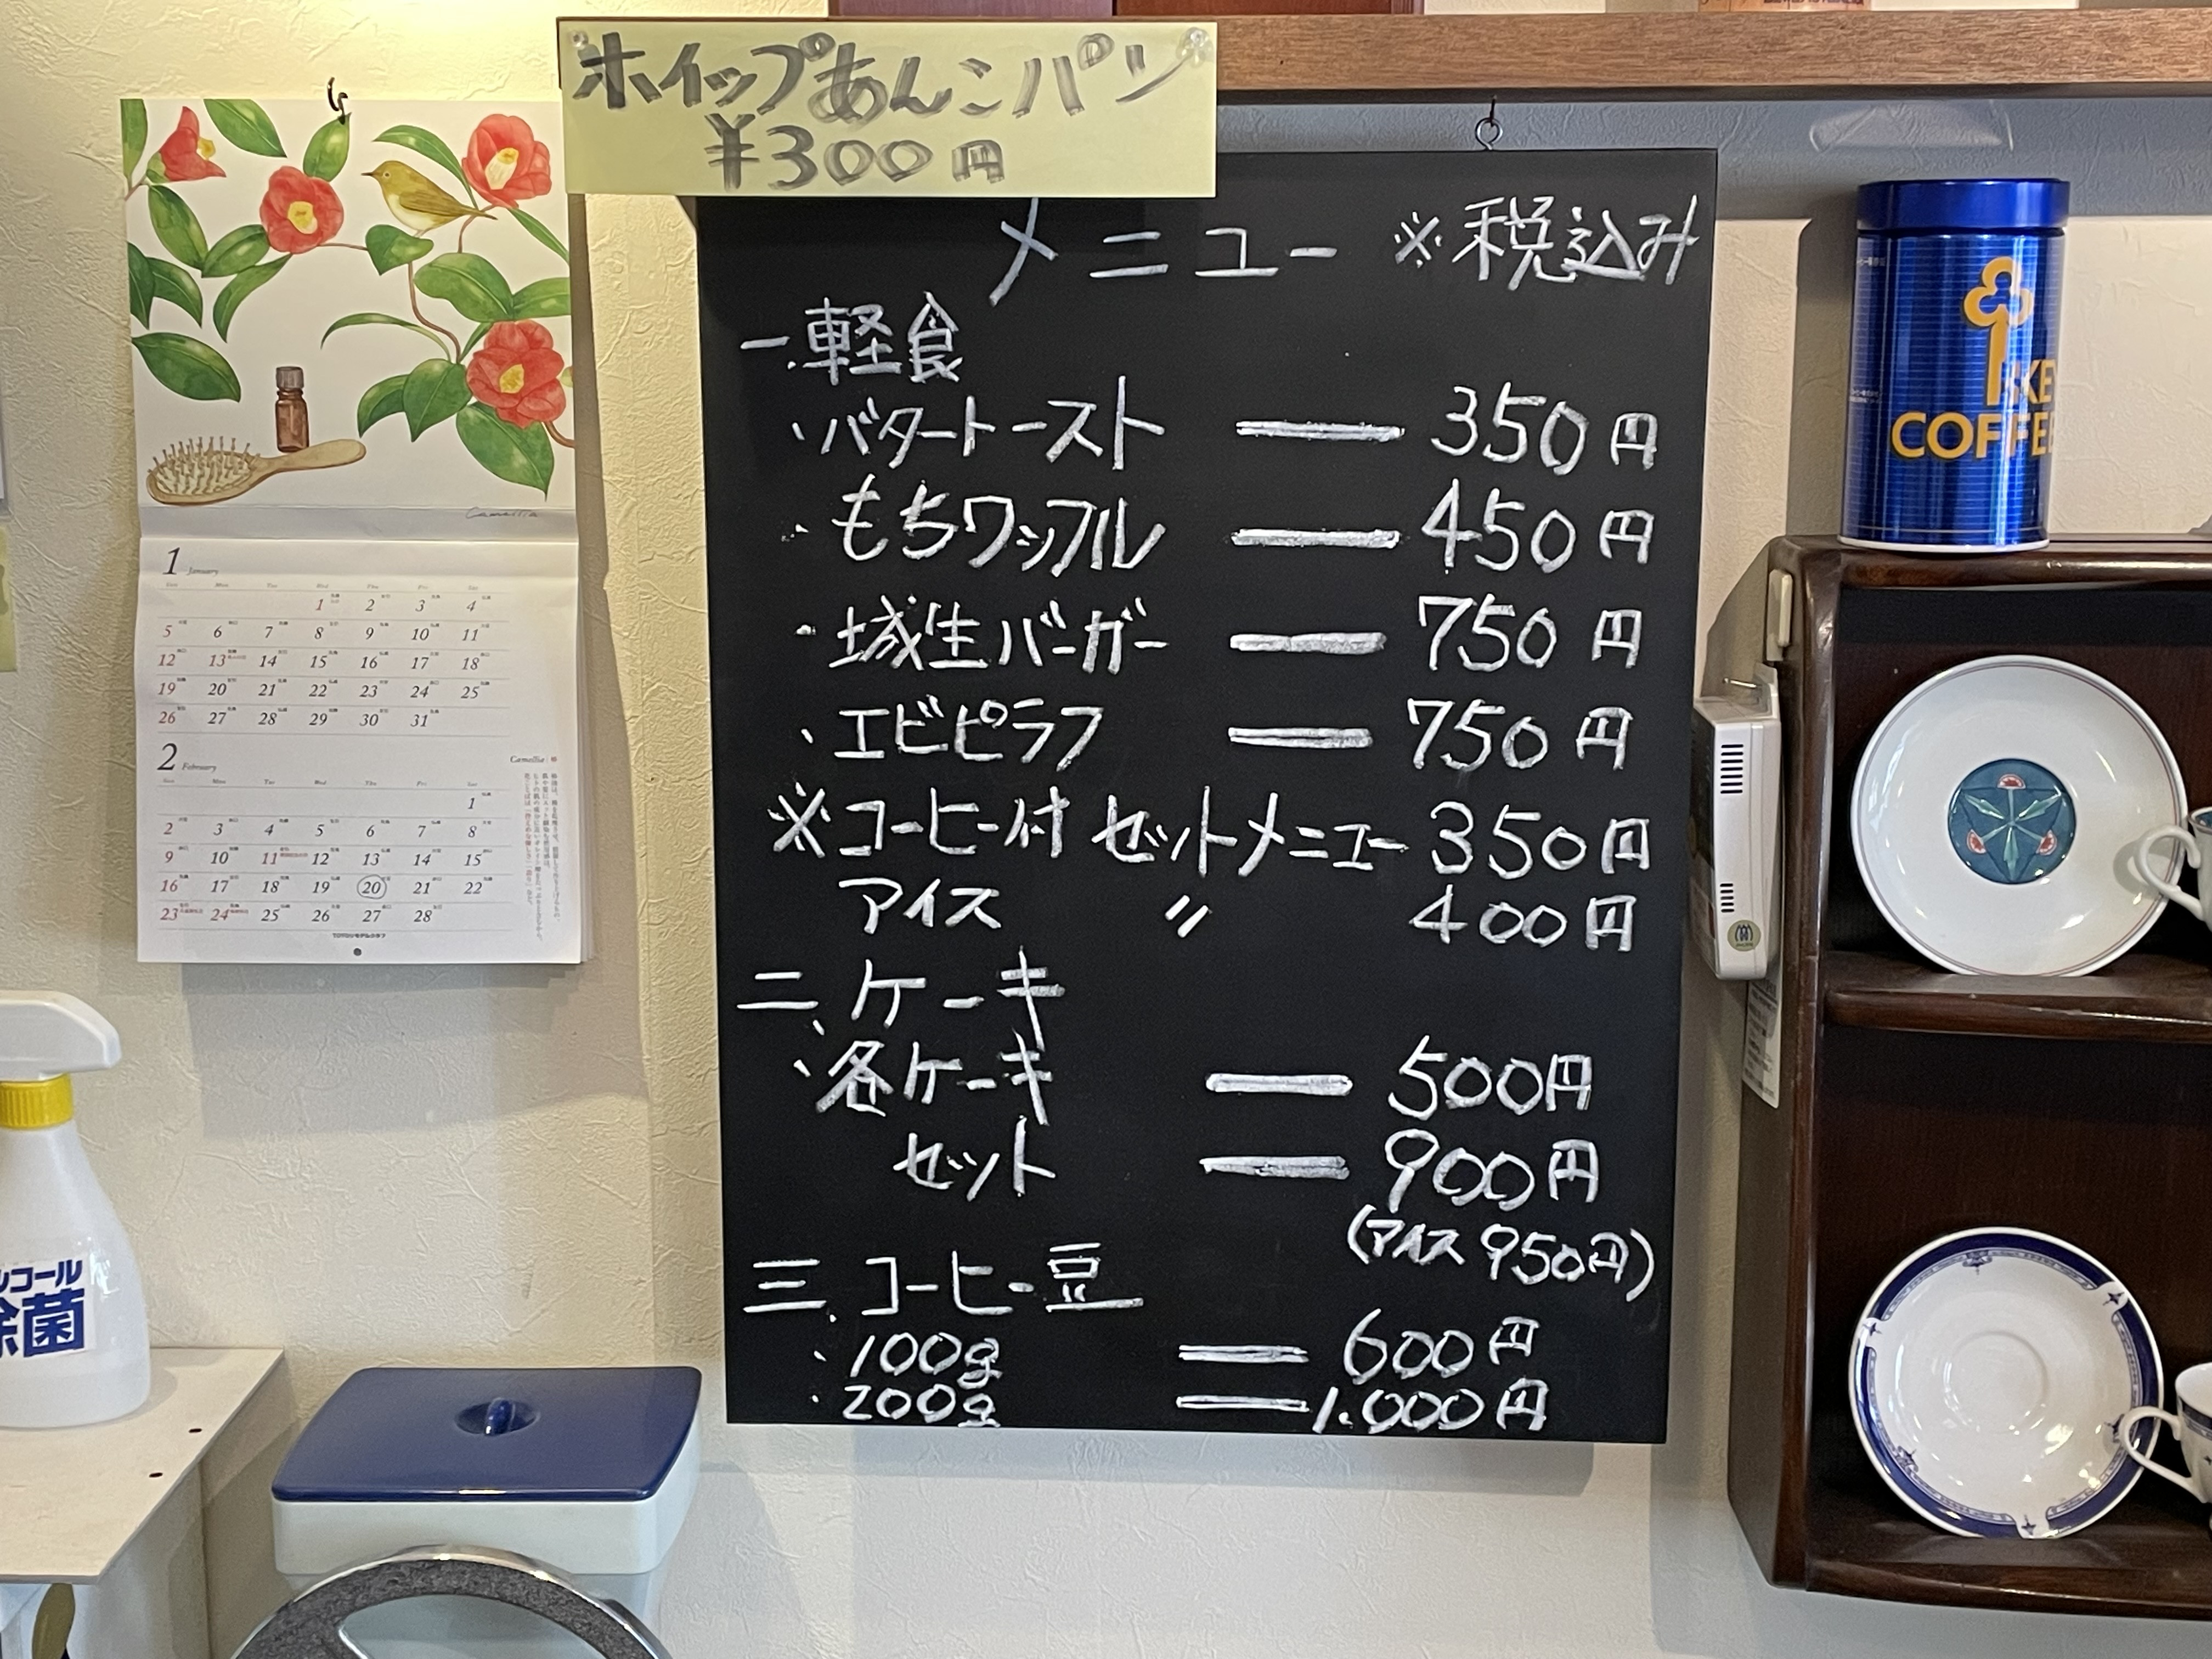 ホイップあんこパン
¥300円
メニュー ※税込み
一.軽食
・バタートースト — 350円
・もちワッフル — 450円
・城生バーガー — 750円
・エビピラフ — 750円
※コーヒー付 セットメニュー 350円
アイス 〃 400円
二、ケーキ
・各ケーキ — 500円
セット — 900円
(アイス 950円)
三.コーヒー豆
・100g — 600円
・200g — 1.000円
Camellia
1 January
Sun Mon Tue Wed Thu Fri Sat
1 2 3 4
5 6 7 8 9 10 11
12 13 14 15 16 17 18
19 20 21 22 23 24 25
26 27 28 29 30 31
2 February
Camellia 椿
Sun Mon Tue Wed Thu Fri Sat
1
2 3 4 5 6 7 8
9 10 11 12 13 14 15
16 17 18 19 20 21 22
23 24 25 26 27 28
KE
COFFEE
ルコール
除菌